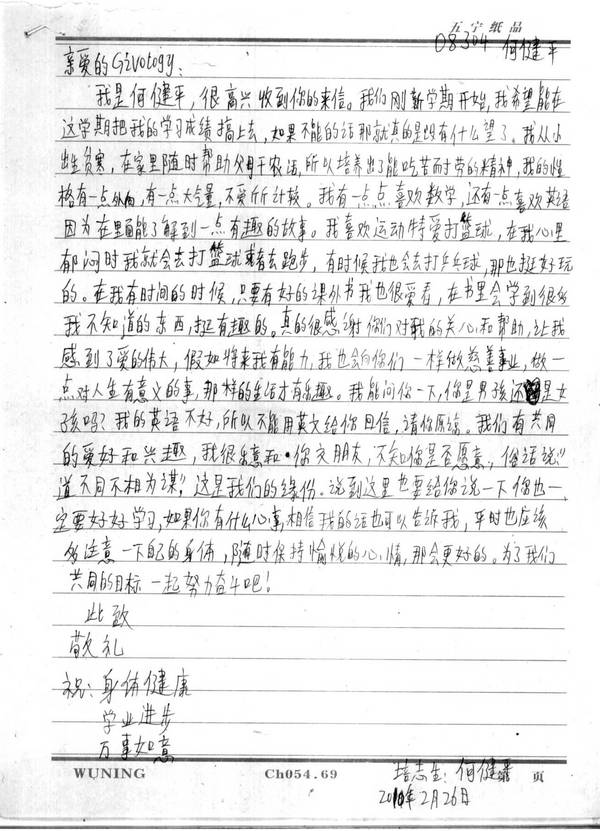 五宁纸品
08304 何健平
亲爱的Givology:
我是何健平，很高兴收到你的来信。我们刚新学期开始,我希望能在
这学期把我的学习成绩搞上去，如果不能的话那就真的是没有什么望了。我从小
出生贫寒，在家里随时帮助父母干农活,所以培养出了能吃苦而才劳的精神,我的性
格有一点外向,有一点大气量,不爱斤斤计较。我有一点点喜欢数学，还有一点喜欢英语
因为在里面能了解到一点有趣的故事。我喜欢运动特爱打篮球，在我心里
郁闷时我就会去打篮球或者去跑步，有时候我也会去打乒乓球,那也挺好玩
的。在我有时间的时候，只要有好的课外书我也很爱看，在书里会学到很多
我不知道的东西,挺有趣的。真的很感谢你们对我的关心和帮助,让我
感到了爱的伟大，假如将来我有能力,我也会向你们一样做慈善事业，做一
点对人生有意义的事，那样的生活才有乐趣。我能问你一下,你是男孩还是女
孩吗？我的英语不好,所以不能用英文给你回信，请你原谅。我们有共同
的爱好和兴趣，我很乐意和你交朋友，不知你是否愿意，俗话说"
道不同不相为谋"，这是我们的缘份。说到这里也要给你说一下你也一
定要好好学习,如果你有什么心事,相信我的话也可以告诉我，平时也应该
多注意一下自己的身体，随时保持愉悦的心情，那会更好的。为了我们
共同的目标一起努力奋斗吧！
此致
敬礼
祝：身体健康
学业进步
万事如意
WUNING Ch054.69 页
培志生：何健平
2010年2月26日